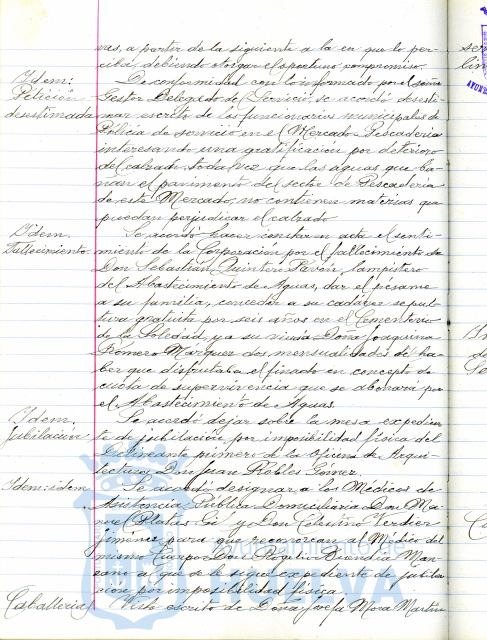 vas, a partir de la siguiente a la en que lo per-
ciba, debiendo otorgar el oportuno compromiso.
Idem:
Petición
desestimada
De conformidad con lo informado por el señor
Gestor Delegado de Servicio, se acordó desesti-
mar escrito de los funcionarios municipales de
Policia de servicio en el Mercado-Pescaderia
interesando una gratificación por deterioro
de calzado, toda vez que las aguas que ba-
nan el pavimento del sector de Pescaderia
de este Mercado, no contienen materias que
puedan perjudicar el calzado
Idem.
Fallecimiento
Se acordó hacer constar en acta el senti-
miento de la Corporación por el fallecimiento de
Don Sebastian Quintero Pavón, lampistero
del Abastecimiento de Aguas, dar el pésame
a su familia, conceder a su cadaver sepul-
tura gratuita por seis años en el Cementerio
de la Soledad, y a su viuda Doña Joaquina
Romero Marquez dos mensualidades del ha-
ber que disfrutaba el finado en concepto de
cuota de supervivencia que se abonará por
el Abastecimiento de Aguas.
Idem.
Jubilacion
Se acordó dejar sobre la mesa expedien-
te de jubilación por imposibilidad física del
Delineante primero de la Oficina de Arqui-
tectura, Don Juan Robles Gómez.
Idem: idem
Se acordó designar a los Médicos de
Asistencia Pública Domiciliaria Don Ma-
nuel Platas Gil y Don Celestino Verdier
Jiménez para que reconozcan al Médico del
mismo Cuerpo Don Rogelio Buendia Man-
zano a que se le sigue expediente de jubila-
ción por imposibilidad física.
Caballerias
Visto escrito de Doña Josefa Mora Martin
Ayuntamiento de
HUELVA